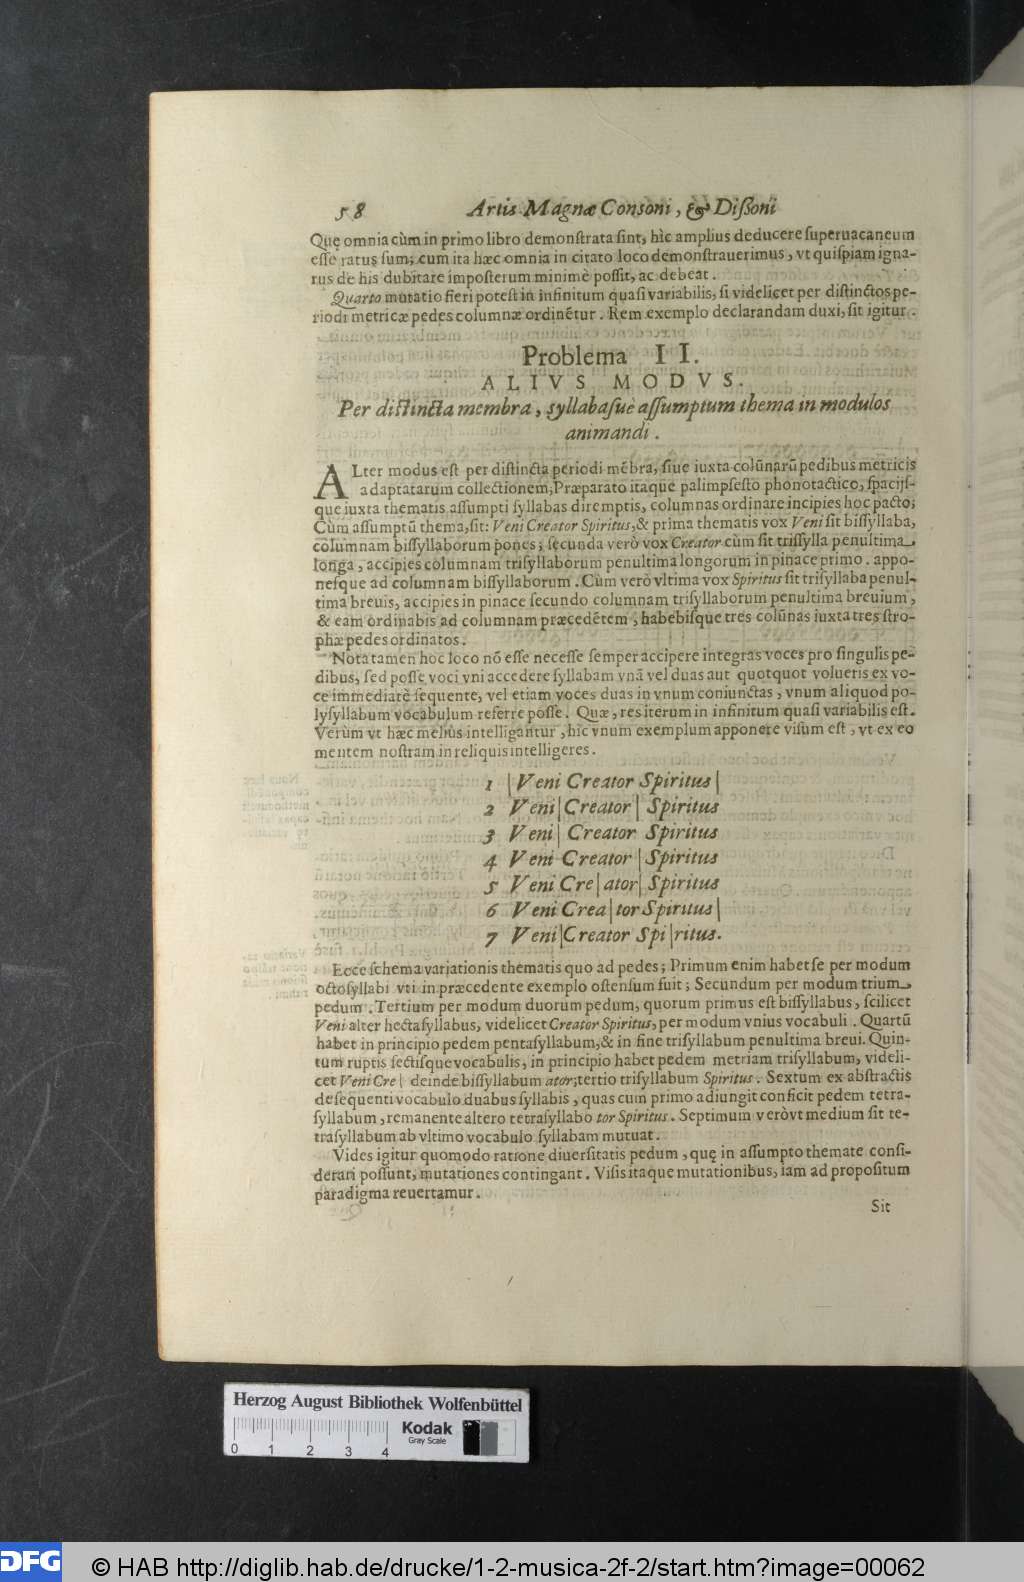 58 Artis Magnæ Consoni, & Dißoni
Quę omnia cùm in primo libro demonſtrata ſint, hìc amplius deducere ſuperuacaneum
eſſe ratus ſum; cum ita hæc omnia in citato loco demonſtrauerimus, vt quiſpiam igna-
rus de his dubitare impoſterum minimè poſſit, ac debeat.
Quarto mutatio fieri poteſt in infinitum quaſi variabilis, ſi videlicet per diſtinctos pe-
riodi metricæ pedes columnæ ordinẽtur. Rem exemplo declarandam duxi, ſit igitur.
Problema II.
ALIVS MODVS.
Per diſtincta membra, ſyllabaſuè aſſumptum thema in modulos
animandi.
ALter modus eſt per diſtincta periodi mẽbra, ſiue iuxta colũnarũ pedibus metricis
adaptatarum collectionem; Præparato itaque palimpſeſto phonotactico, ſpacijſ-
que iuxta thematis aſſumpti ſyllabas diremptis, columnas ordinare incipies hoc pacto;
Cùm aſſumptũ thema, ſit: Veni Creator Spiritus, & prima thematis vox Veni ſit biſſyllaba,
columnam biſſyllaborum pones; ſecunda verò vox Creator cùm ſit triſſylla penultima
longa, accipies columnam triſyllaborum penultima longorum in pinace primo. appo-
neſque ad columnam biſſyllaborum. Cùm verò vltima vox Spiritus ſit triſyllaba penul-
tima breuis, accipies in pinace ſecundo columnam triſyllaborum penultima breuium,
& eam ordinabis ad columnam præcedẽtem, habebiſque tres colũnas iuxta tres ſtro-
phæ pedes ordinatos.
Nota tamen hoc loco nõ eſſe neceſſe ſemper accipere integras voces pro ſingulis pe-
dibus, ſed poſſe voci vni accedere ſyllabam vnã vel duas aut quotquot volueris ex vo-
ce immediatè ſequente, vel etiam voces duas in vnum coniunctas, vnum aliquod po-
lyſyllabum vocabulum referre poſſe. Quæ, res iterum in infinitum quaſi variabilis eſt.
Verùm vt hæc meliùs intelligantur, hìc vnum exemplum apponere viſum eſt, vt ex eo
mentem noſtram in reliquis intelligeres.
1 | Veni Creator Spiritus |
2 Veni | Creator | Spiritus
3 Veni | Creator Spiritus
4 Veni Creator | Spiritus
5 Veni Cre | ator | Spiritus
6 Veni Crea | tor Spiritus |
7 Veni | Creator Spi | ritus.
Ecce ſchema variationis thematis quo ad pedes; Primum enim habet ſe per modum
octoſyllabi vti in præcedente exemplo oſtenſum fuit; Secundum per modum trium
pedum. Tertium per modum duorum pedum, quorum primus eſt biſſyllabus, ſcilicet
Veni alter hectaſyllabus, videlicet Creator Spiritus, per modum vnius vocabuli. Quartũ
habet in principio pedem pentaſyllabum, & in fine triſyllabum penultima breui. Quin-
tum ruptis ſectiſque vocabulis, in principio habet pedem metriam triſyllabum, videli-
cet Veni Cre | deinde biſſyllabum ator; tertio triſyllabum Spiritus. Sextum ex abſtractis
de ſequenti vocabulo duabus ſyllabis, quas cum primo adiungit conficit pedem tetra-
ſyllabum, remanente altero tetraſyllabo tor Spiritus. Septimum veròvt medium ſit te-
traſyllabum ab vltimo vocabulo ſyllabam mutuat.
Vides igitur quomodo ratione diuerſitatis pedum, quę in aſſumpto themate conſi-
derari poſſunt, mutationes contingant. Viſis itaque mutationibus, iam ad propoſitum
paradigma reuertamur.
Sit
Herzog August Bibliothek Wolfenbüttel
Kodak
Gray Scale
0 1 2 3 4
DFG © HAB http://diglib.hab.de/drucke/1-2-musica-2f-2/start.htm?image=00062